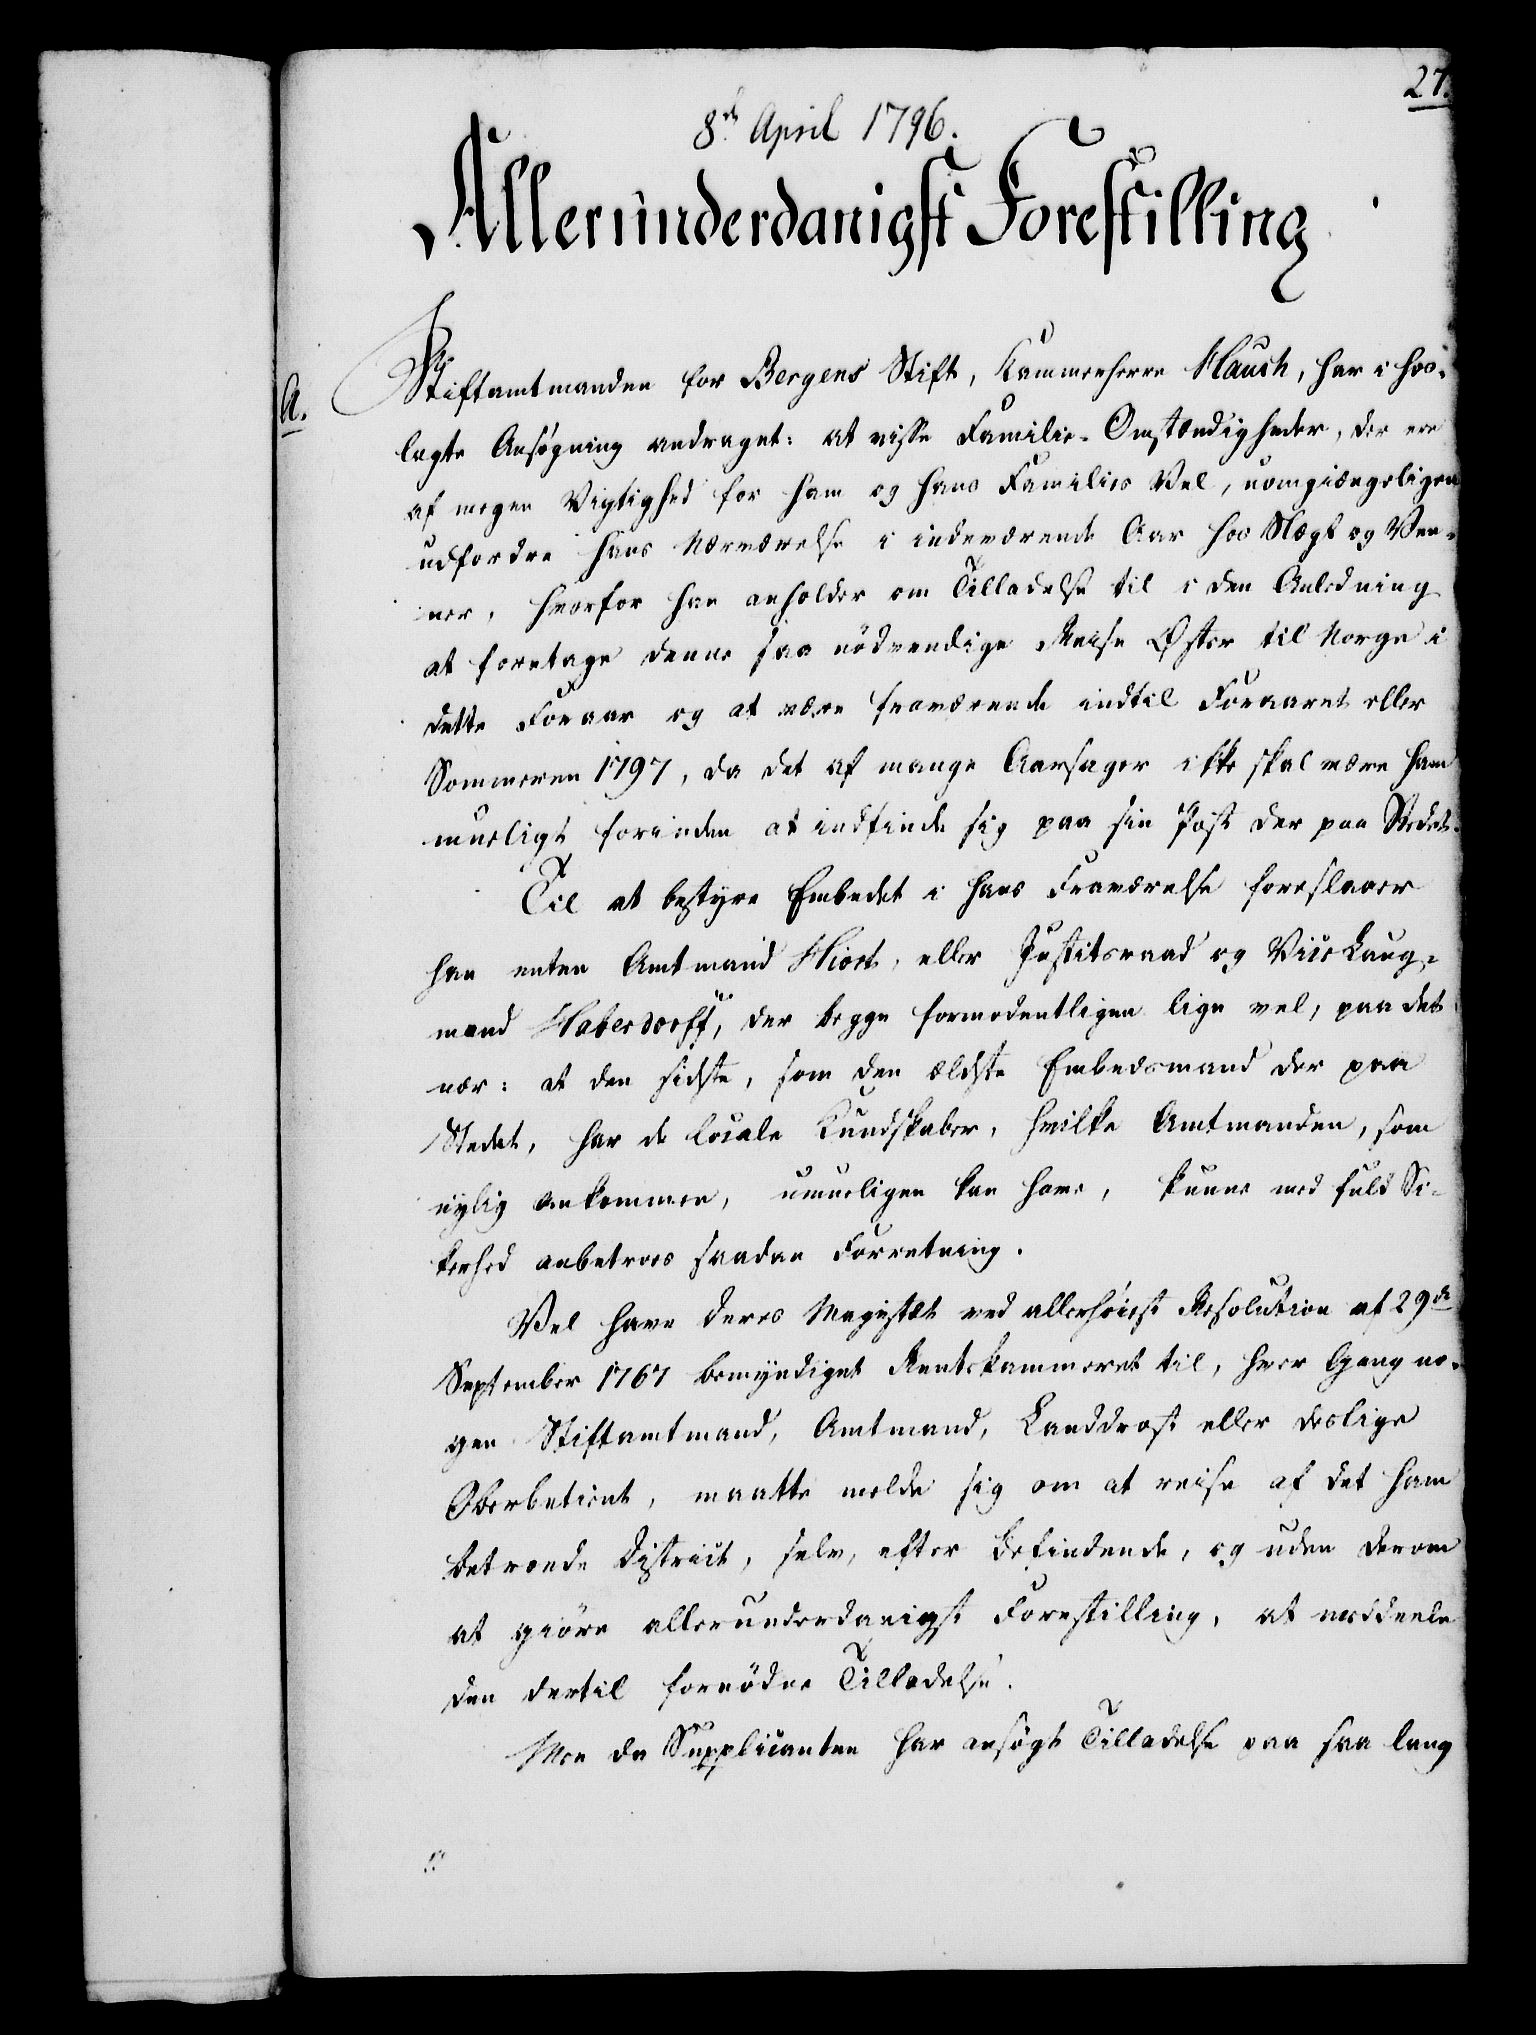 27.
8de April 1796.
Allerunderdanigst Forestilling
A.
Stiftamtmanden for Bergens Stift, Kammerherre Hauch, har i hos-
lagte Ansøgning andraget: at visse Familie-Omstændigheder, der ere
af megen Vigtighed for ham og hans Families Vel, uomgiængeligen
udfordre hans Nærværelse i indeværende Aar hos Slægt og Ven-
ner, hvorfor han anholder om Tilladelse til i den Anledning
at foretage denne saa nödvendige Reise Öster til Norge i
dette Foraar og at være fraværende indtil Foraaret eller
Sommeren 1797, da det af mange Aarsager ikke skal være ham
mueligt forinden at indfinde sig paa sin Post der paa Stedet.
Til at bestyre Embedet i hans Fraværelse foreslaaer
han enten Amtmand Hiort, eller Justitsraad og Vice Laug-
mand Haberdorff, der begge formodentligen lige vel, paa det
nær: at den sidste, som den ældste Embedsmand der paa
Stedet, har de locale Kundskaber, hvilke Amtmanden, som
nylig ankommen, umueligen kan have, kunne med fuld Si-
kerhed anbetroes saadan Forretning.
Vel have Deres Majestæt ved allerhöieste Resolution af 29de
September 1767 bemyndiget Rentekammeret til, hver Gang no-
gen Stiftamtmand, Amtmand, Landdrost eller deslige
Oberbetient, maatte melde sig om at reise af det ham
betroede District, selv, efter Befindende, og uden derom
at giöre allerunderdanigst Forestilling, at meddeele
den dertil fornödne Tilladelse.
Men da Supplicanten har ansøgt Tilladelse paa saa lang